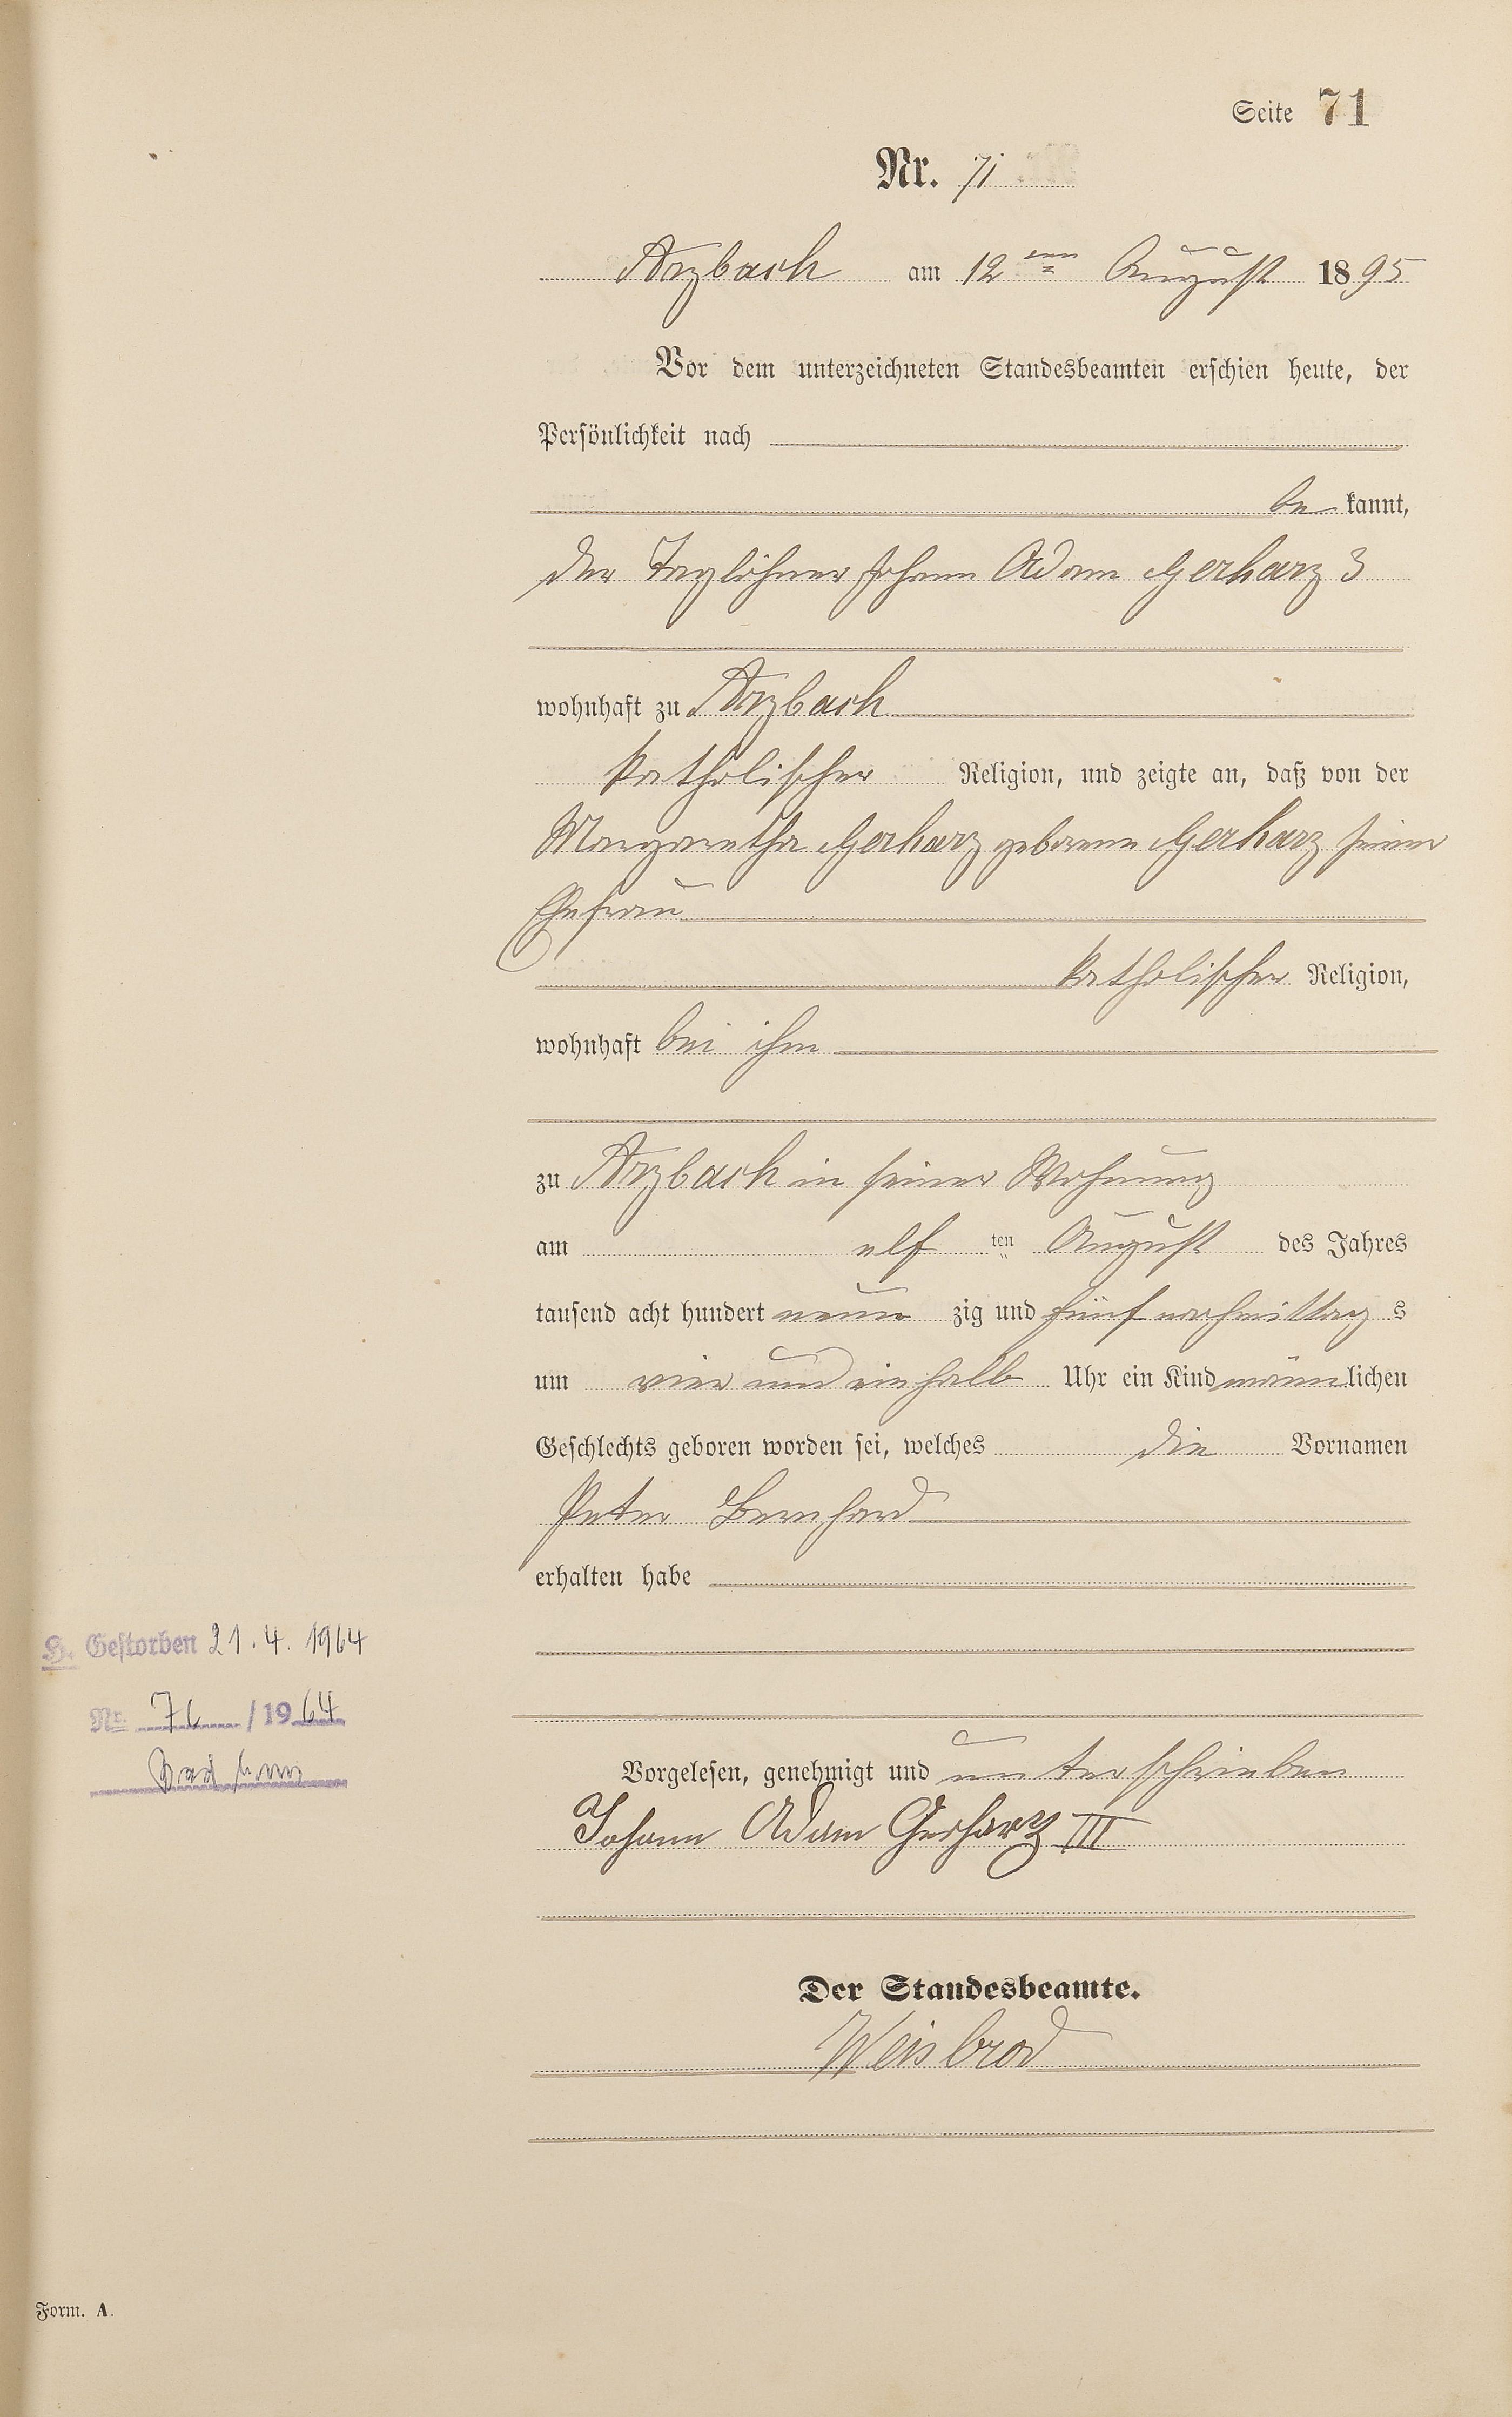 Seite 71
Nr. 71
Arzbach am 12ten August 1895
Vor dem unterzeichneten Standesbeamten erschien heute, der
Persönlichkeit nach
bekannt,
der Taglöhner Johann Adam Gerharz 3
wohnhaft zu Arzbach
katholischer Religion, und zeigte an, daß von der
Margaretha Gerharz geborene Gerharz seiner
Ehefrau
katholischer Religion,
wohnhaft bei ihm
zu Arzbach in seiner Wohnung
am elf ten August des Jahres
tausend acht hundert neun zig und fünf nachmittag s
um vier und ein halb Uhr ein Kind männlichen
Geschlechts geboren worden sei, welches die Vornamen
Peter Bernhard
erhalten habe
H. Gestorben 21.4.1964
Nr. /1964
Bad Ems
Vorgelesen, genehmigt und unterschrieben
Johann Adam Gerharz III
Der Standesbeamte.
Weisbrod
Form. A.